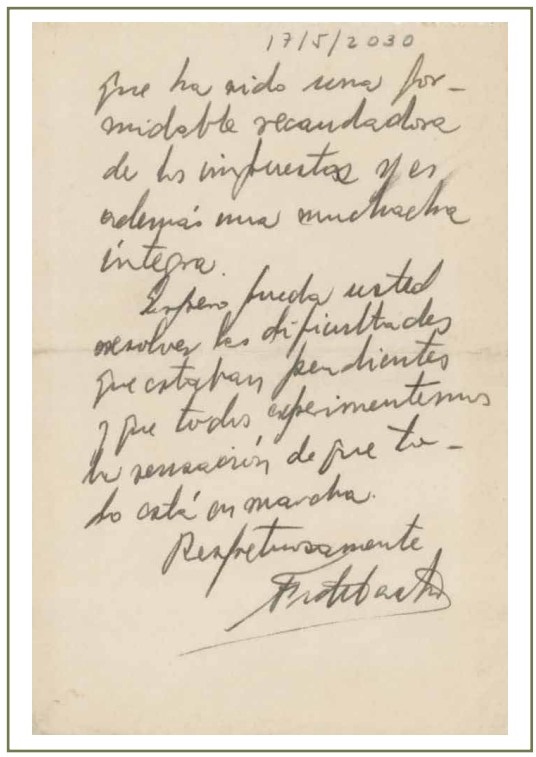 17/5/2030
que ha sido una for-
midable recaudadora
de los impuestos y es
además una muchacha
íntegra.
Espero pueda usted
resolver las dificultades
que estaban pendientes
y que todos experimentemos
la sensación de que to-
do está en marcha.
Respetuosamente